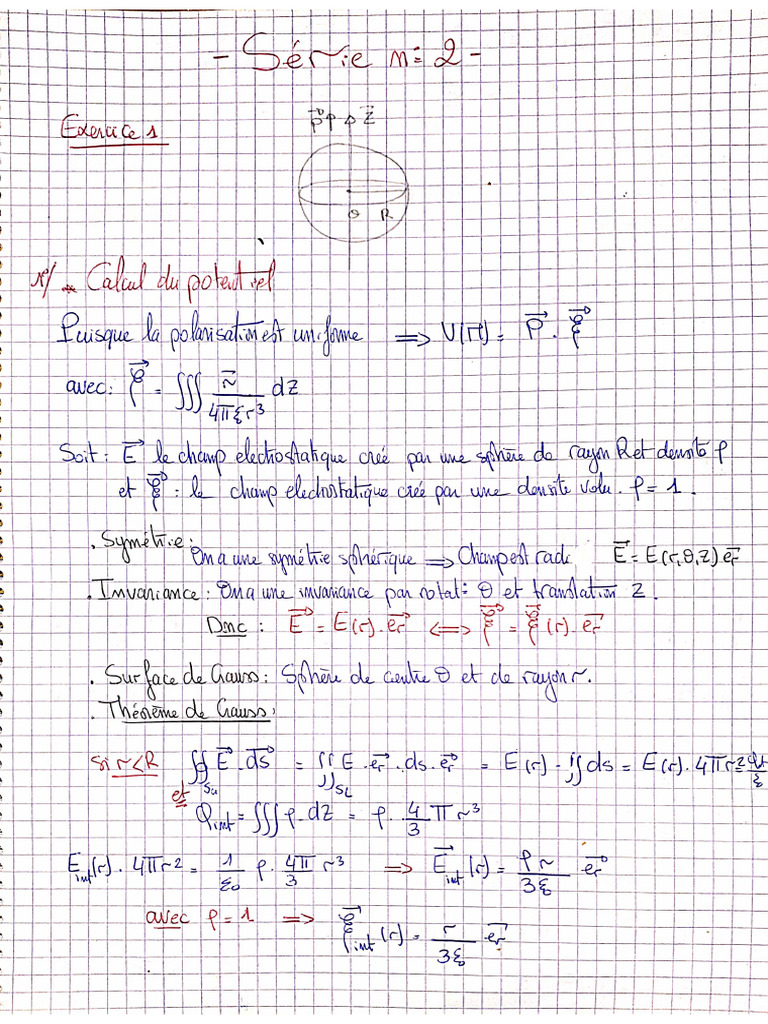 - Série n=2 -
Exercice 1
P⃗ Z⃗
O R
1°/ Calcul du potentiel
Puisque la polarisation est uniforme ⟹ V(M) = P⃗ . ξ⃗
avec: ξ⃗ = ∭ r⃗ / 4πε₀r³ dZ
Soit: E⃗ le champ electrostatique créé par une sphère de rayon R et densité ρ
et ξ⃗ : le champ electrostatique créé par une densite volu. ρ = 1.
. Symétrie: On a une symétrie sphérique ⟹ Champ est radi. E⃗ = E(r,θ,Z) e⃗r
. Invariance: On a une invariance par rotat: θ et translation Z.
Donc : E⃗ = E(r). e⃗r ⟺ ξ⃗ = ξ(r). e⃗r
. Surface de Gauss: Sphère de centre O et de rayon r.
. Théorème de Gauss:
si r<R ∯ E⃗.ds⃗ = ∬ E. e⃗r . ds. e⃗r = E(r) . ∬ ds = E(r). 4πr² =
et Qint = ∭ ρ. dZ = ρ. 4/3 π r³
Eint(r). 4πr² = 1/ε₀ ρ. 4π/3 r³ ⟹ E⃗int(r) = ρr/3ε₀ e⃗r
avec ρ = 1 ⟹ ξ⃗int(r) = r/3ε₀ e⃗r